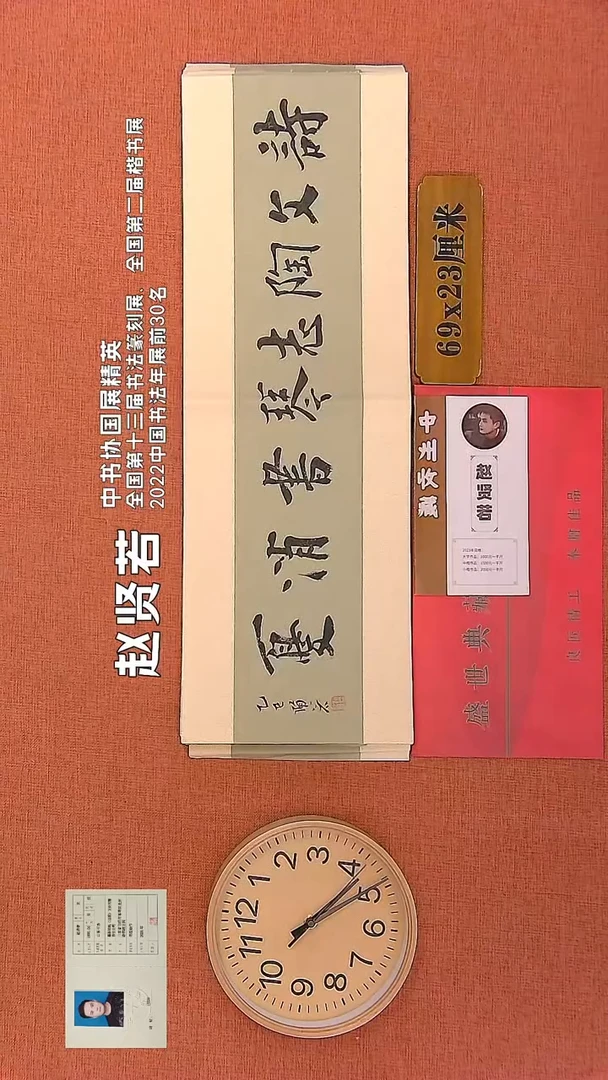 赵贤若
中书协国展精英
全国第十三届书法篆刻展、全国第二届楷书展
2022中国书法年展前30名
詩文陶志琴書消憂
乙巳賢若
69x23厘米
赵贤若
盛世典藏
12
1
2
3
4
5
6
7
8
9
10
11